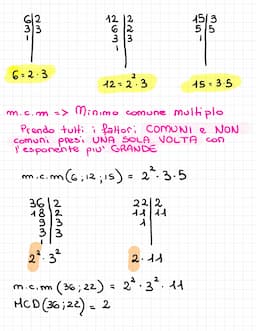 6|2   12|2   15|3
3|3   6|2   5|5
1|   3|3   1|
1|
6=2·3   12=2²·3   15=3·5
m.c.m => Minimo comune multiplo
Prendo tutti i fattori COMUNI e NON
comuni presi UNA SOLA VOLTA con
l'esponente piu' GRANDE
m.c.m(6;12;15) = 2²·3·5
36|2   22|2
18|2   11|11
9|3   1|
3|3
1|
2²·3²   2·11
m.c.m(36;22) = 2²·3²·11
MCD(36;22) = 2